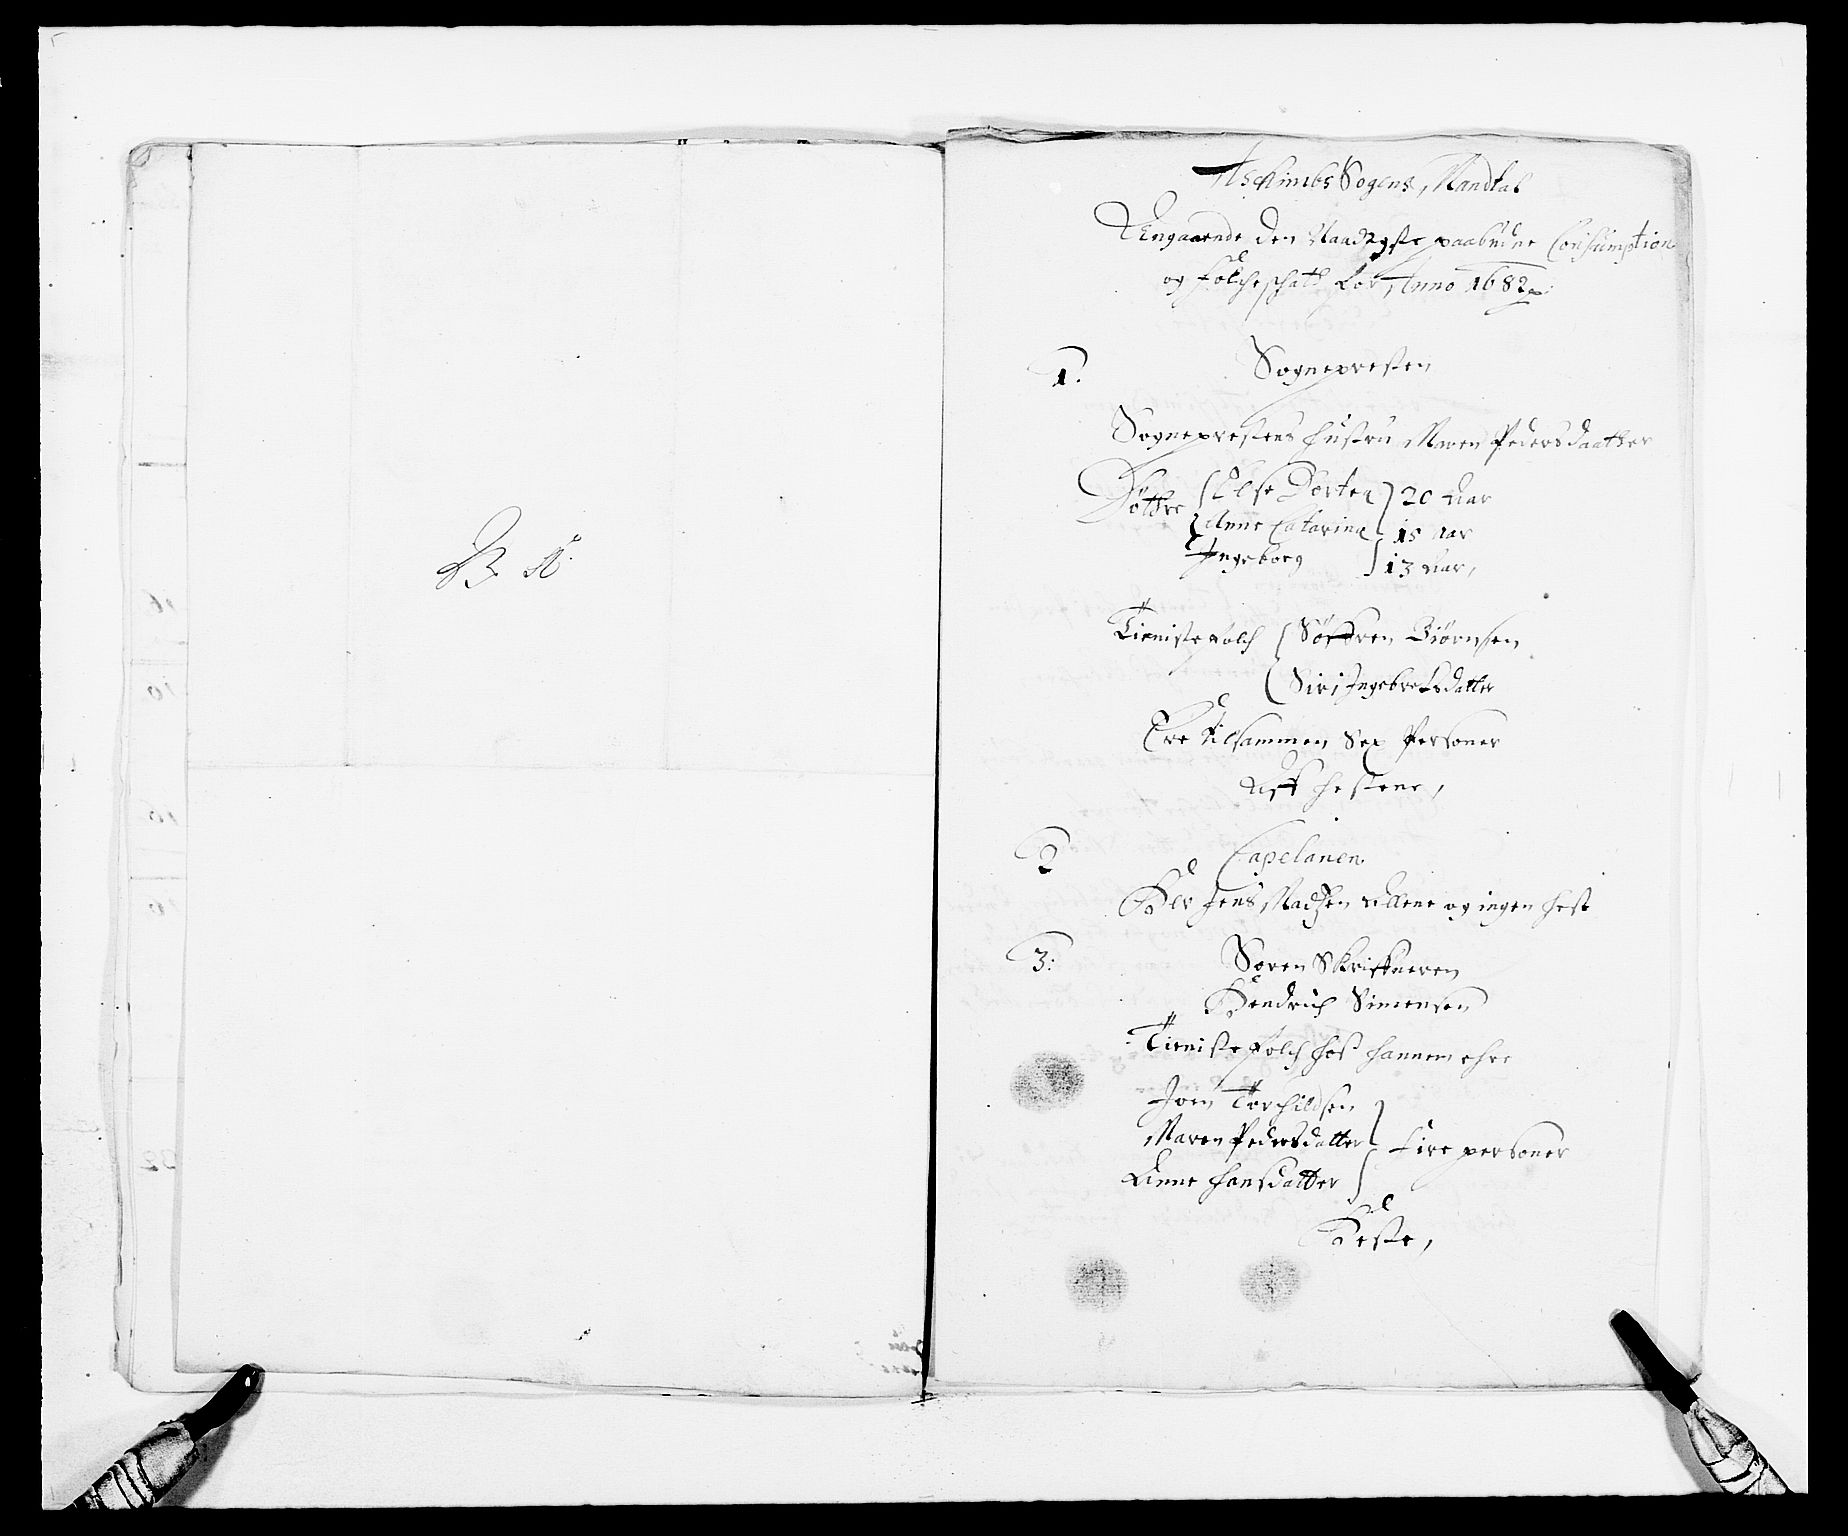 Aschimbs Sogens Mandtal
Angaaende den Naadigste paabudne Consumption
og folcheschatt for Anno 1682
1. Sognepresten
Sogneprestens hustru Maren Pedersdaatter
Døthre Else Dorten 20 aar
Anne Catarina 15 aar
Ingeborg 13 aar,
Tieniste folch Søffren Biørnsen
Siri Ingebretsdatter
Ere tilsammen Sex Personer
hestene,
2 Capelanen
Her Jens Madsen allene og ingen hest
3: Soren Skriffueren
Hendrich Simensen
Tieniste folch hos hannem ehre
Joen Torchildsen
Maren Pedersdatter fire personer
Anne hansdatter
Heste,